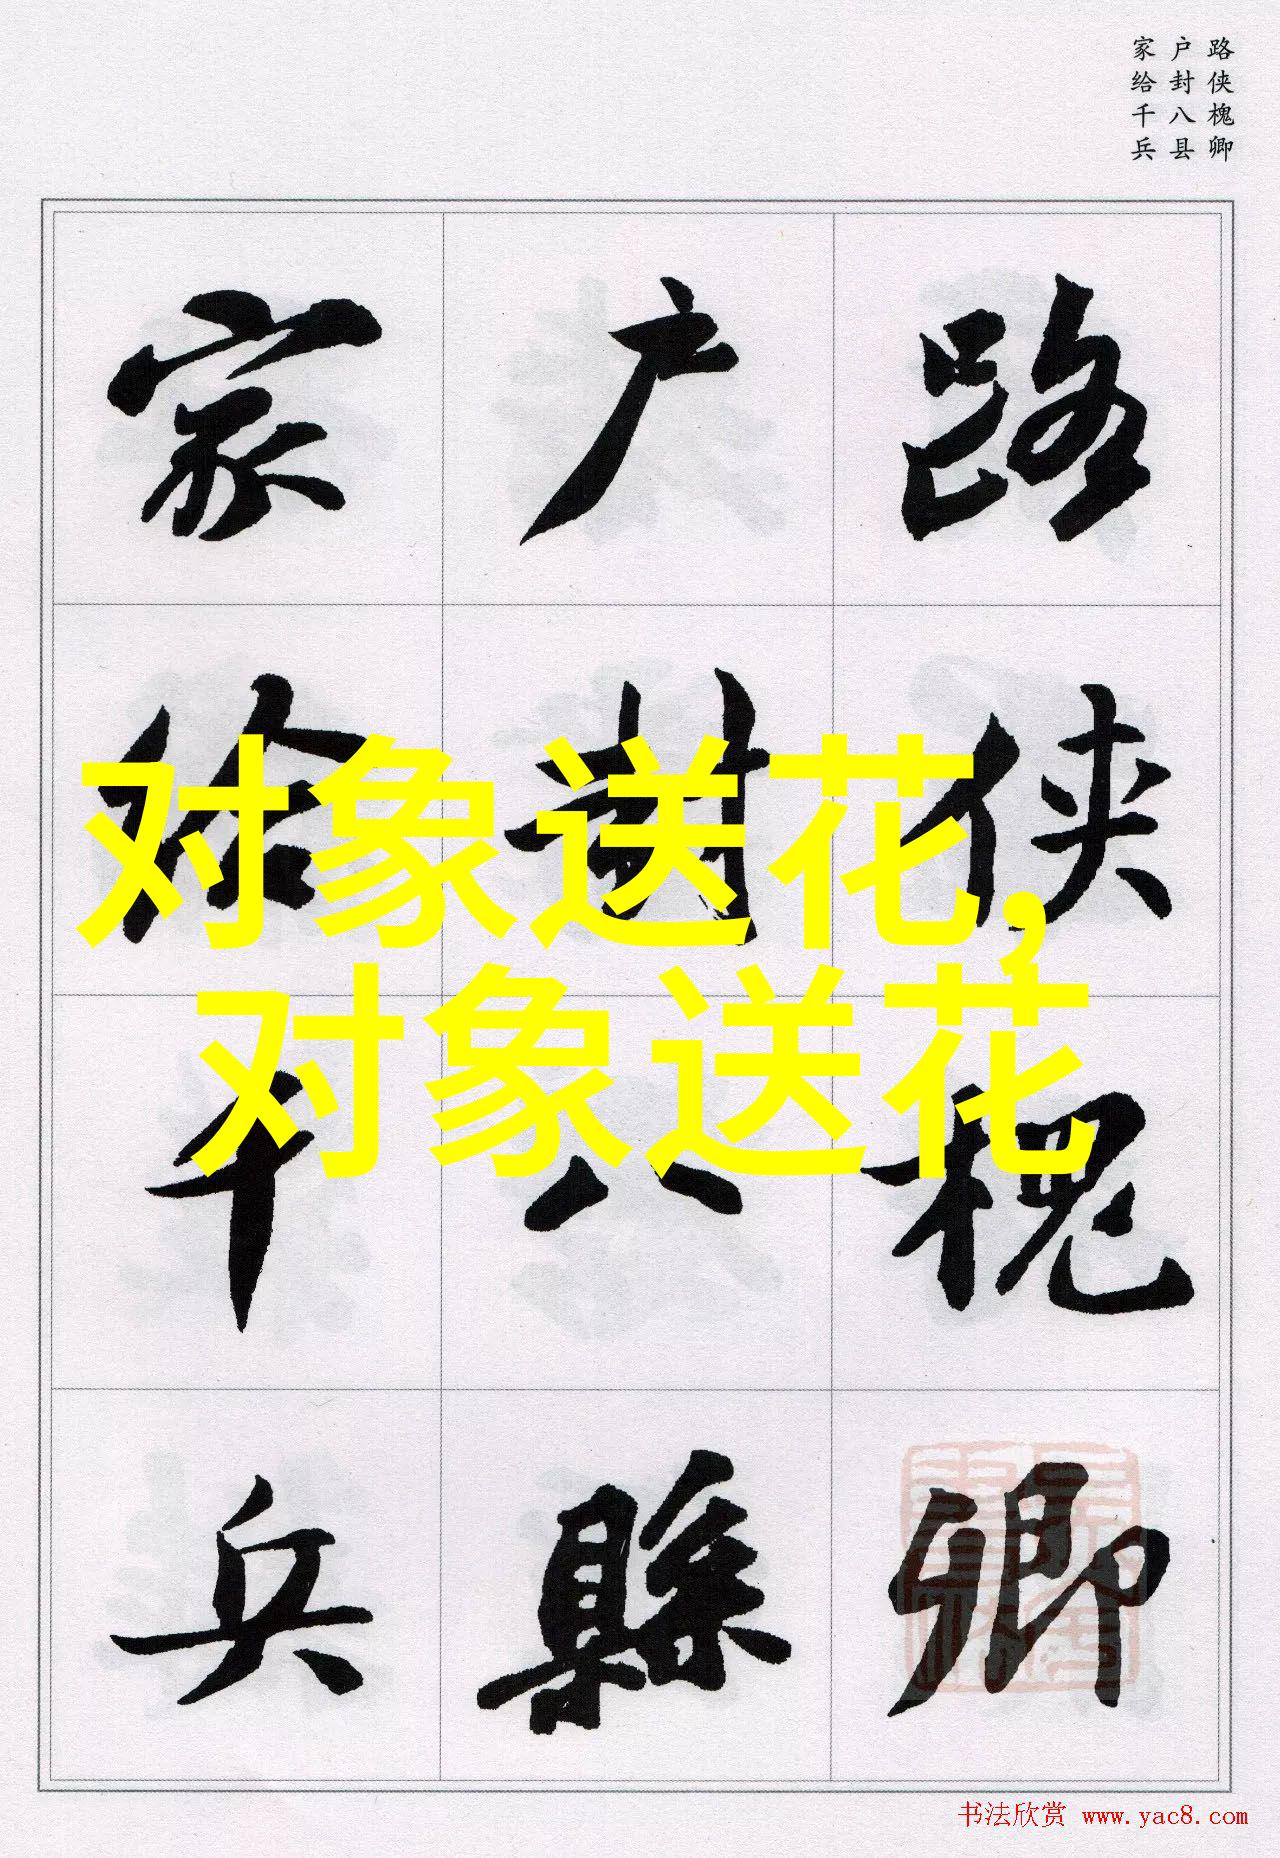 路侠槐卿
户封八县
家给千兵
路侠槐卿
户封八縣
家给千兵
对象送花,
对象送花
书法欣赏 www.yac8.com